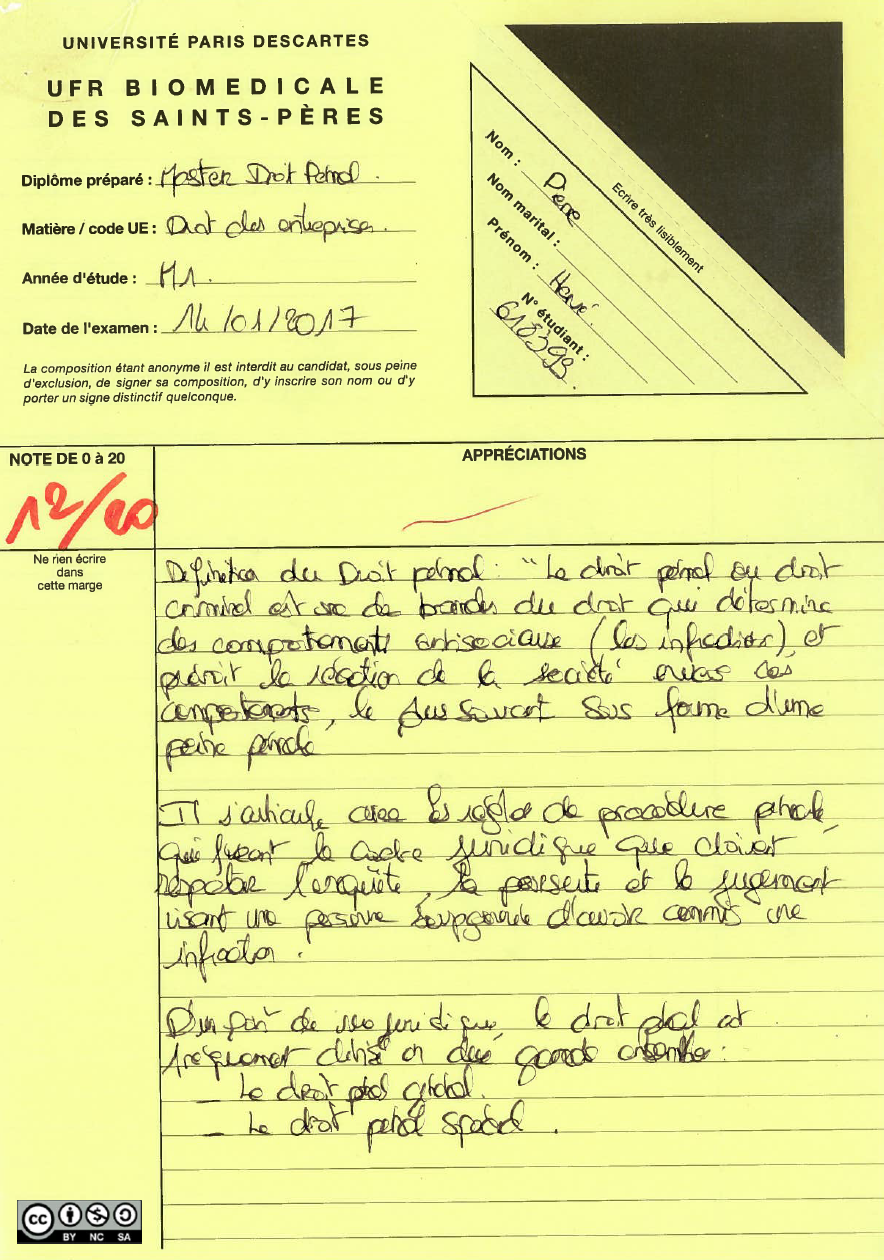 UNIVERSITÉ PARIS DESCARTES
UFR BIOMEDICALE
DES SAINTS-PÈRES
Diplôme préparé : Master Droit Pénal.
Matière / code UE : Droit des entreprises.
Année d'étude : M1.
Date de l'examen : 14/01/2017
La composition étant anonyme il est interdit au candidat, sous peine
d'exclusion, de signer sa composition, d'y inscrire son nom ou d'y
porter un signe distinctif quelconque.
Nom :
Nom marital :
Prénom : Hervé.
N° étudiant :
618393
Ecrire très lisiblement
NOTE DE 0 à 20
12/20
APPRÉCIATIONS
Ne rien écrire
dans
cette marge
Definition du Droit pénal : "Le droit pénal ou droit
criminel est une des branches du droit qui détermine
des comportements antisociaux (les infractions), et
prévoit la réaction de la société envers ces
comportements, le plus souvent sous forme d'une
peine pénale
Il s'articule avec les règles de procédure pénale,
qui fixent le cadre juridique que doivent
respecter l'enquête, la poursuite et le jugement
visant une personne soupçonnée d'avoir commis une
infraction.
D'un point de vue juridique, le droit pénal est
fréquemment divisé en deux grands ensembles :
_ Le droit pénal général.
_ Le droit pénal spécial.
cc BY NC SA